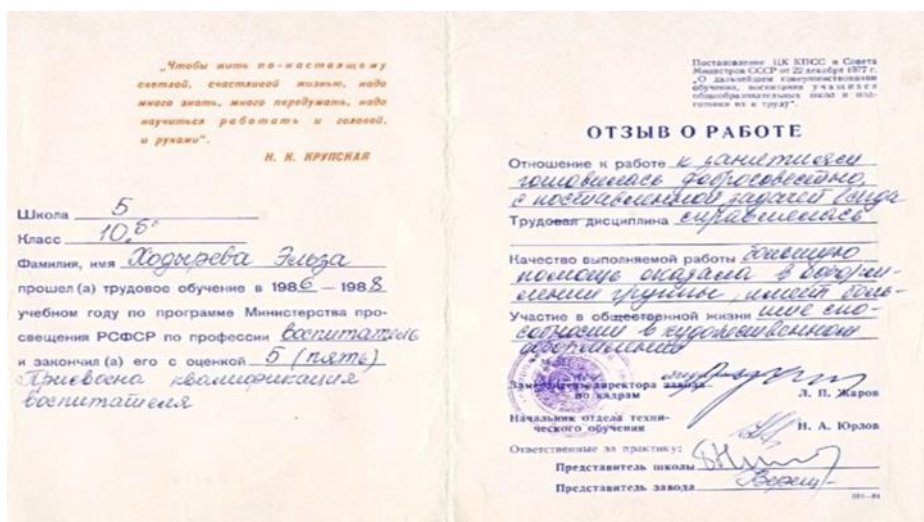 „Чтобы жить по-настоящему
светлой, счастливой жизнью, надо
много знать, много передумать, надо
научиться работать и головой,
и руками“.
Н. К. КРУПСКАЯ
Школа 5
Класс 10 „б“
Фамилия, имя Ходырева Эльза
прошел (а) трудовое обучение в 1986 — 1988
учебном году по программе Министерства про-
свещения РСФСР по профессии Воспитатель
и закончил (а) его с оценкой 5 (пять)
Присвоена квалификация
воспитателя
Постановление ЦК КПСС и Совета
Министров СССР от 22 декабря 1977 г.
„О дальнейшем совершенствовании
обучения, воспитания учащихся
общеобразовательных школ и под-
готовки их к труду“.
ОТЗЫВ О РАБОТЕ
Отношение к работе к занятиям
готовилась добросовестно,
с поставленной задачей всегда
Трудовая дисциплина справлялась
Качество выполняемой работы большую
помощь оказала в оформ-
лении группы, имеет боль-
Участие в общественной жизни шие спо-
собности в художественном
оформлении
Заместитель директора завода
по кадрам
Л. П. Жаров
Начальник отдела техни-
ческого обучения
Н. А. Юрлов
Ответственные за практику:
Представитель школы
Представитель завода